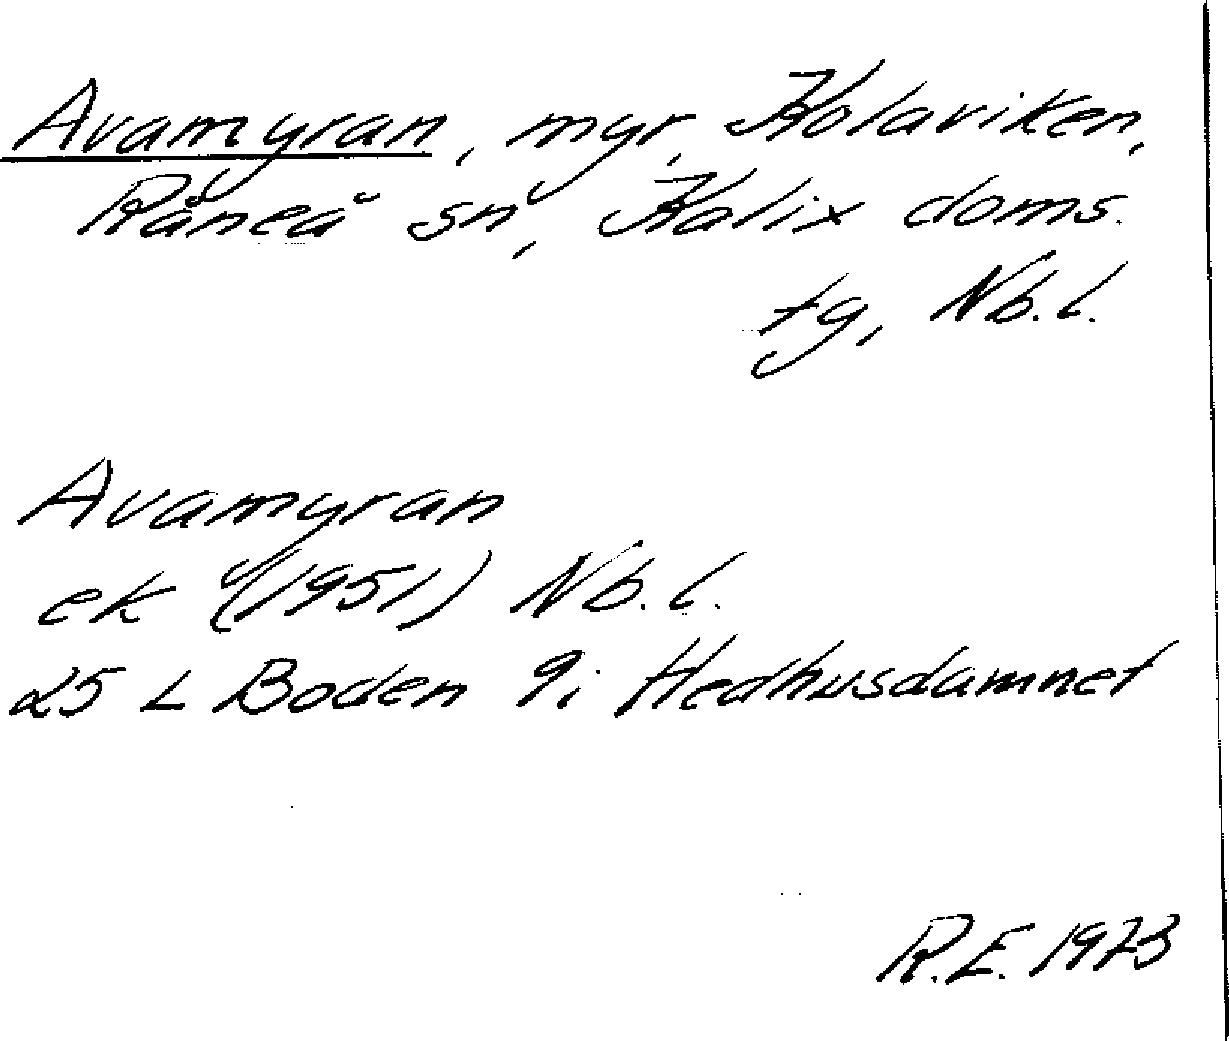 Avamyran, myr, Kolaviken,
Råneå sn, Kalix doms.
tg, Nb.l.
Avamyran
ek (1951) Nb.l.
25 L Boden 9i Hedhusdamnet
R.E. 1973